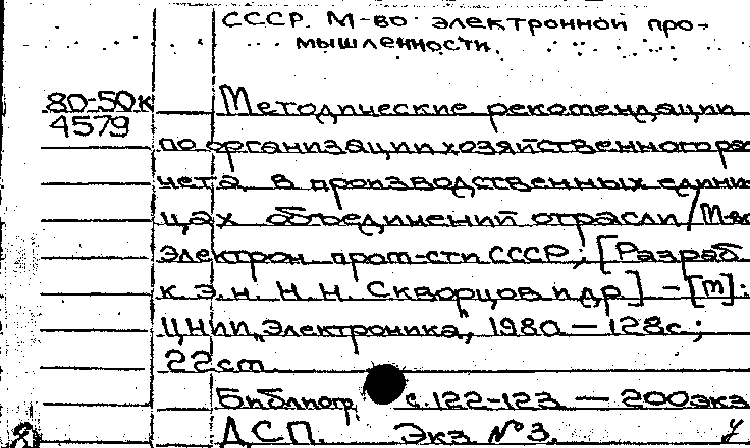 СССР. М-во электронной про-
мышленности.
80-50к
4579
Методические рекомендации
по организации хозяйственного рас
чета в производственных едини
цах объединений отрасли / М-во
электрон. пром-сти СССР; [Разраб.
к.э.н. Н.Н. Скворцов и др] – [М]:
ЦНИИ „Электроника", 1980 – 128с.;
22см
Библиогр. с.122-123 – 200экз
ДСП. Экз №3.